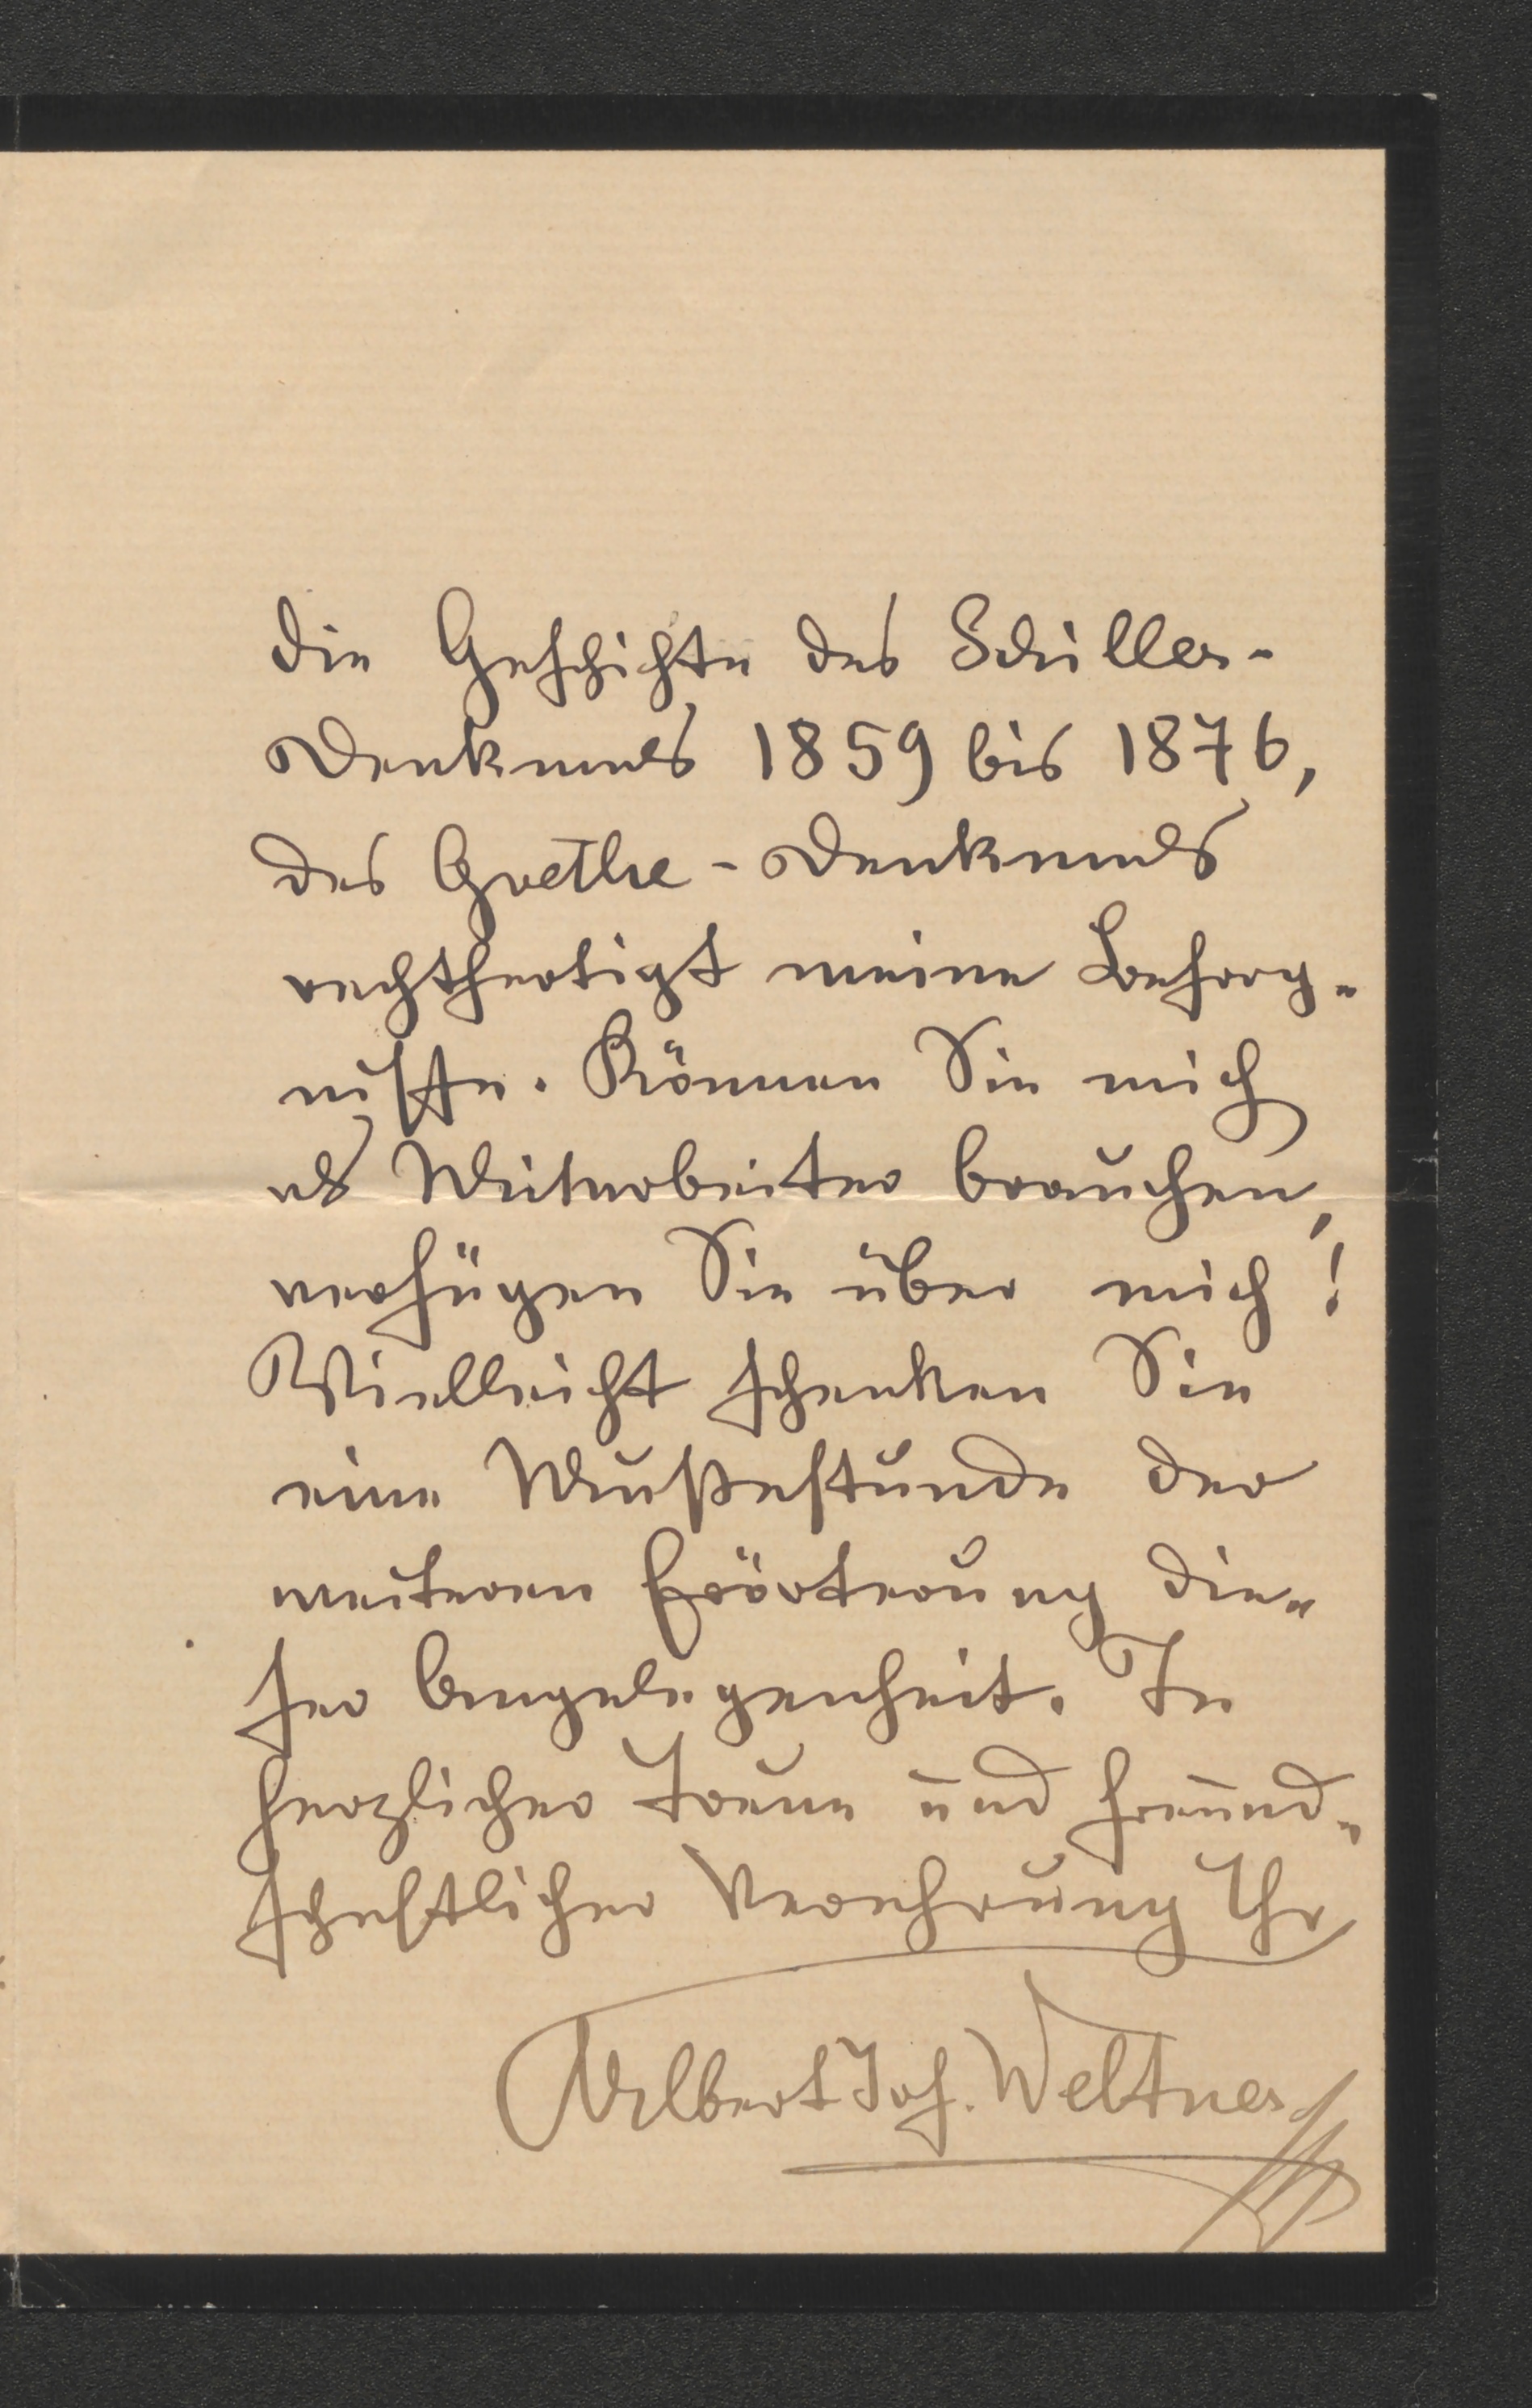 die Geschichte des Schiller-
Denkmals 1859 bis 1876,
des Goethe-Denkmals
rechtfertigt meine Besorg-
nisse. Können Sie mich
als Mitarbeiter brauchen,
verfügen Sie über mich!
Vielleicht schenken Sie
eine Mußestunde der
weiteren Erörterung die-
ser Angelegenheit. In
herzlicher Treue und freund-
schaftlicher Verehrung Ihr
Albert Jos. Weltner